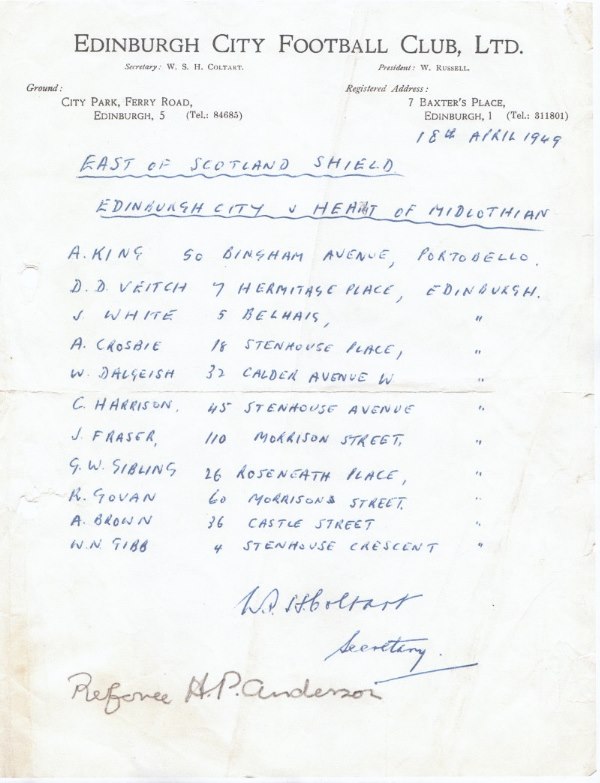 EDINBURGH CITY FOOTBALL CLUB, LTD.
Secretary: W. S. H. COLTART. President: W. RUSSELL.
Ground: Registered Address:
CITY PARK, FERRY ROAD, 7 BAXTER'S PLACE,
EDINBURGH, 5 (Tel.: 84685) EDINBURGH, 1 (Tel.: 311801)
18th APRIL 1949
EAST OF SCOTLAND SHIELD
EDINBURGH CITY v HEART OF MIDLOTHIAN
A. KING 50 BINGHAM AVENUE, PORTOBELLO.
D. D. VEITCH 7 HERMITAGE PLACE, EDINBURGH.
J WHITE 5 BELHAIG, "
A. CROSBIE 18 STENHOUSE PLACE, "
W. DALGEISH 32 CALDER AVENUE W "
C. HARRISON, 45 STENHOUSE AVENUE "
J. FRASER, 110 MORRISON STREET, "
G. W. GIBLING 26 ROSENEATH PLACE, "
R. GOVAN 60 MORRISONS STREET. "
A. BROWN 36 CASTLE STREET "
W. N. GIBB 4 STENHOUSE CRESCENT "
W. S. H. Coltart
Secretary.
Referee H. P. Anderson